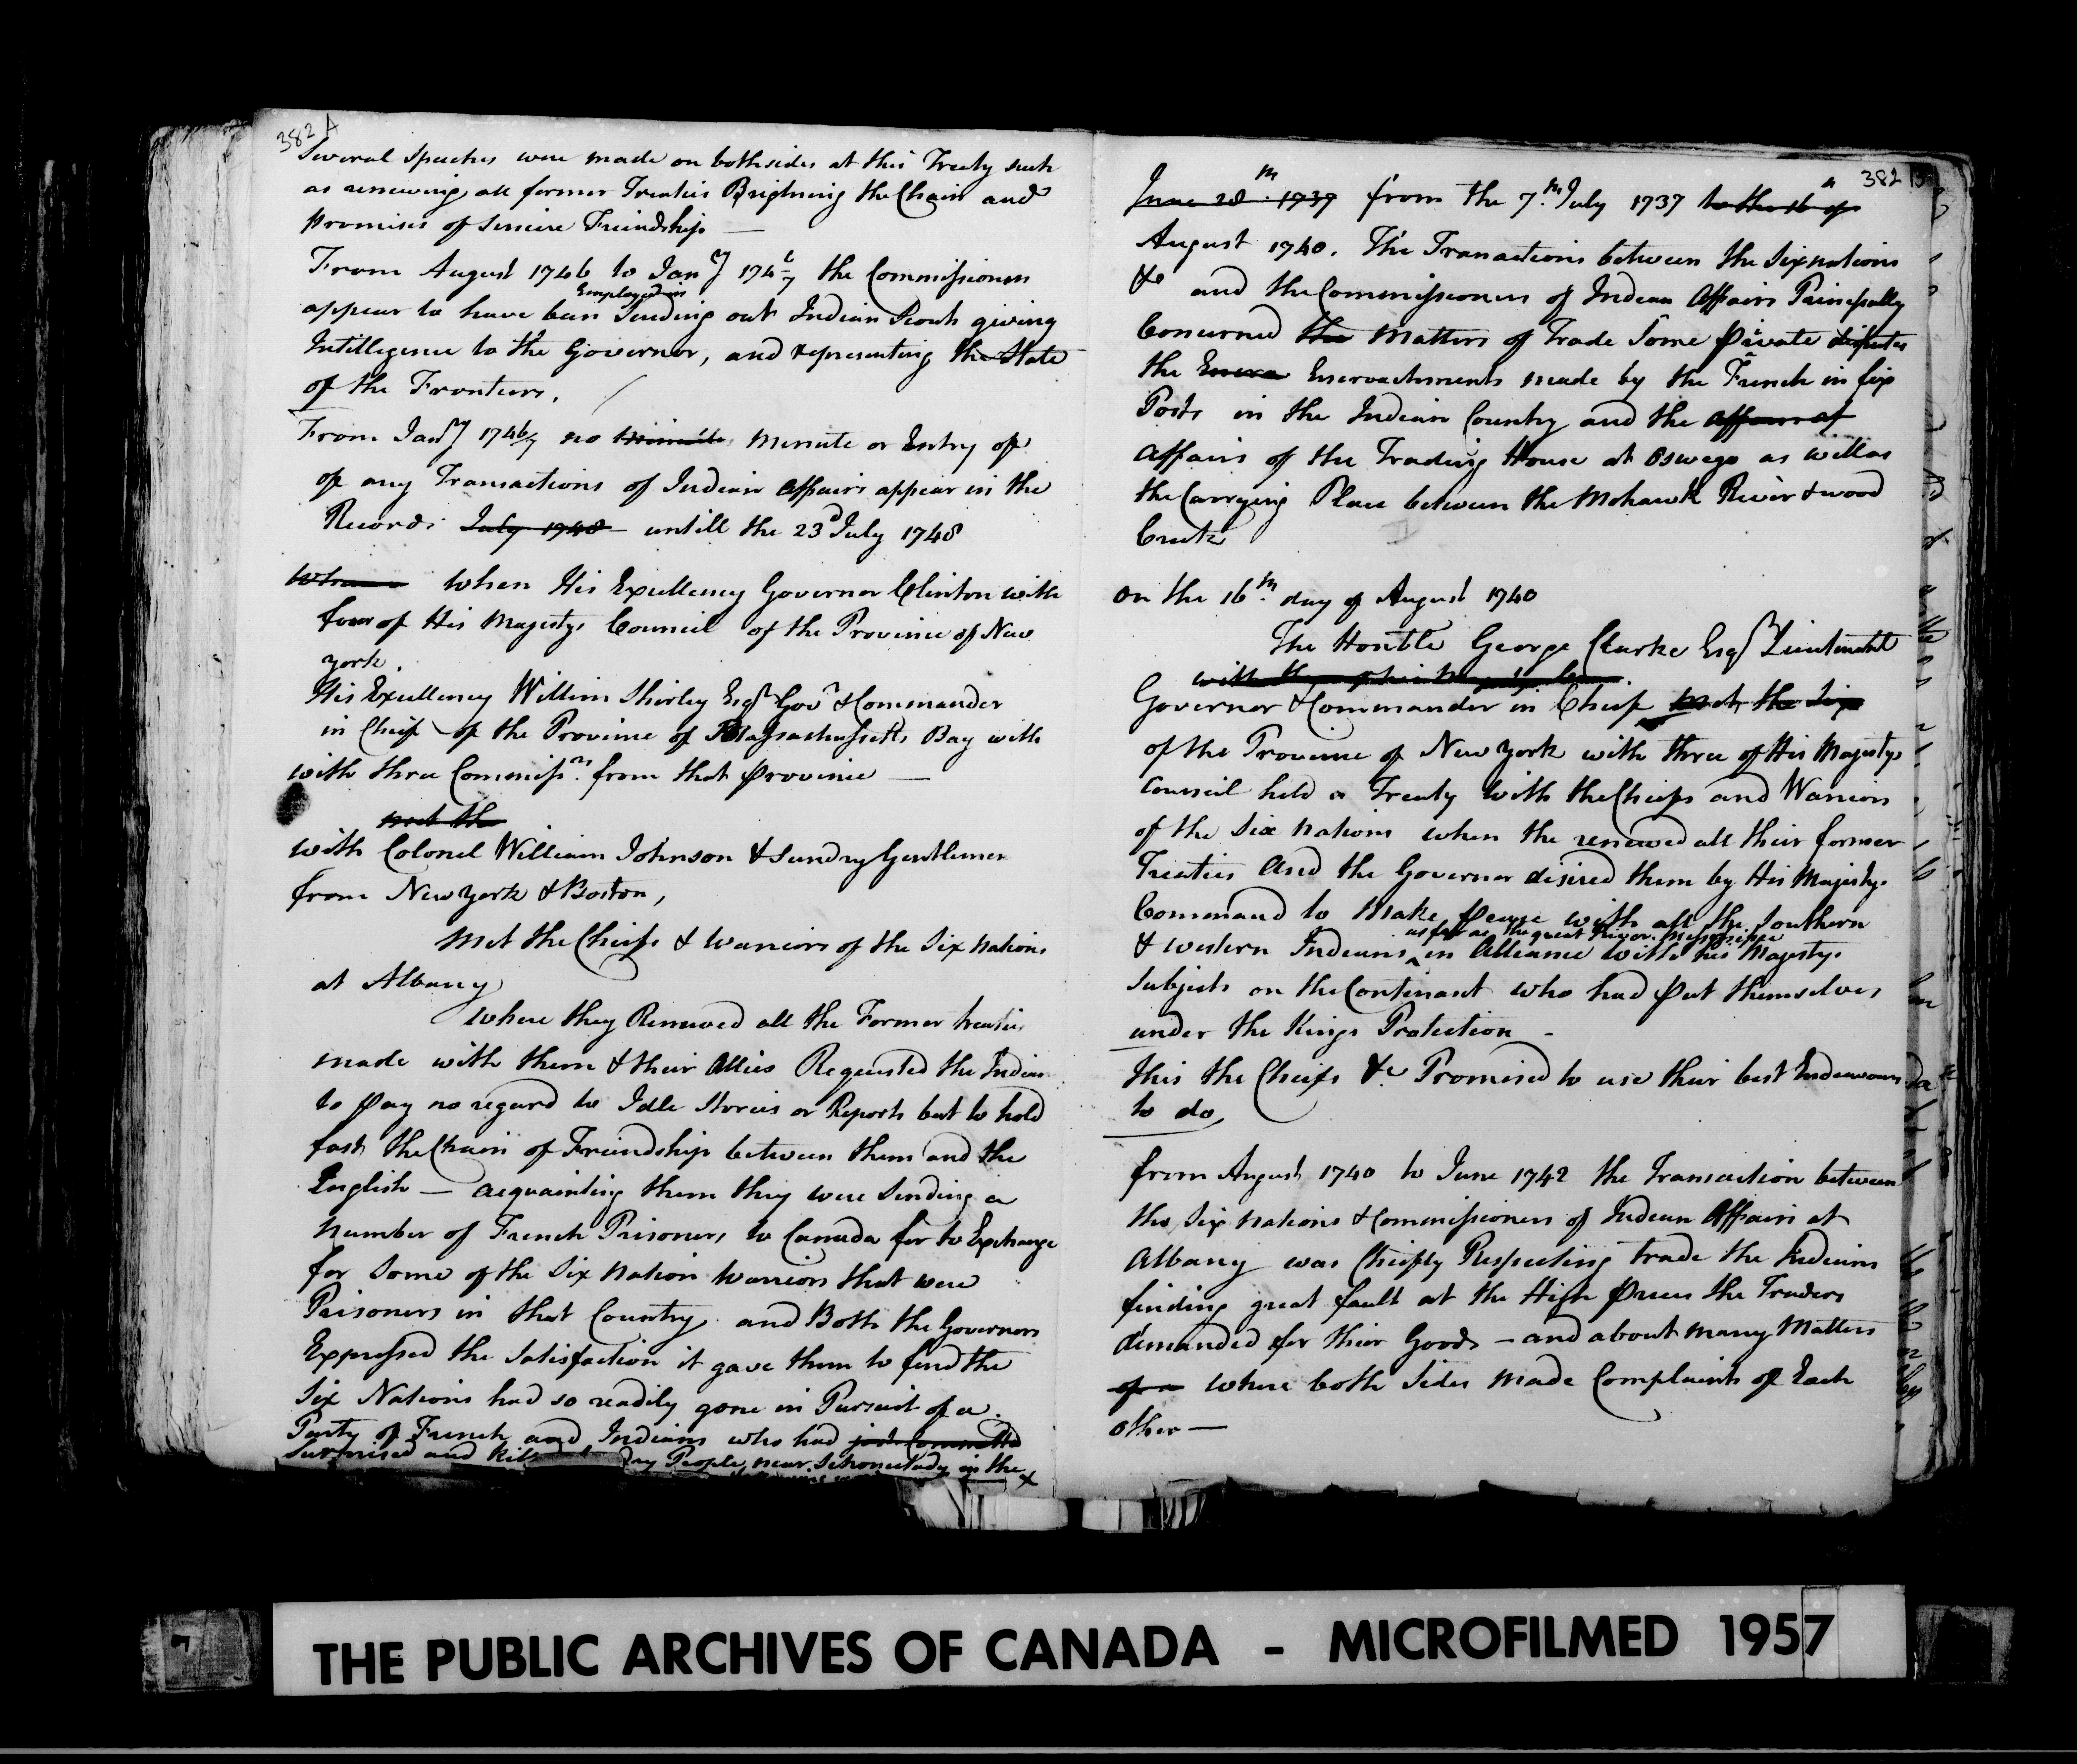 382 A
Several Speeches were made on bothsides at this Treaty such
as renewing all former Treaties Brightning the Chain and
promises of sincere Friendship —
From August 1746 to Jany 1746/7 the Commissioners
Employed in
appear to have been Sending out Indian Scouts giving
Intillegence to the Governor, and representing the State
of the Frontiers.
From Jany 1746/7 no minute or Entry of
of any Transactions of Indian Affairs appear in the
Records July 1748 untill the 23d July 1748
When His Excellency Governor Clinton with
four of His Majestys Council of the Province of New
York.
His Excellency Willim Shirley Esqr Govr & Commander
in Cheif of the Province of Massachussetts Bay with
with three Commissrs from that province —
met the
with Colonel William Johnson & Sundry Gentlemen
from New York & Boston,
Met the Cheifs & Warriors of the Six Nations
at Albany
Where they Renewed all the Former treaties
made with them & their Allies Requested the Indians
to pay no regard to Idle Stories or Reports but to hold
fast the Chain of Friendship between them and the
English — acquainting them they were Sending a
number of French Prisoners to Canada for to Exchange
for Some of the Six Nation Warriors that were
Prisoners in that Country and Both the Governors
Expressed the Satisfaction it gave them to find the
Six Nations had so readily gone in Pursuit of a
Party of French and Indians who had just Committed
Surprised and People near Schonectady in the
382
June 28th 1737 from the 7th July 1737 to the 16 of
August 1740. The Transactions between the Sixnations
&c and the Commissioners of Indian Affairs Principally
Concerned the Matters of Trade Some private disputes
the Encroachments made by the French in six
Posts in the Indian Country and the affairs of
Affairs of the Trading House at Oswego as well as
the Carrying Place between the Mohawk River & wood
Creek
on the 16th day of August 1740
The Honble George Clarke Esqr Lieutenant
Governor & Commander in Cheif met the Six
of the Province of New York with three of His Majestys
Council held a Treaty with the Cheifs and Warriors
of the Six Nations when the renewed all their former
Treaties And the Governor desired them by His Majestys
Command to Make peace with all the Southern
as far as the great River Missisippe
& western Indians in Alliance with his Majestys
Subjects on the Continant who had put themselves
under the Kings Protection —
this the Cheifs &c Promised to use their best Endeavours
to do,
from August 1740 to June 1742 the Transaction between
the Six Nations & Commissioners of Indian Affairs at
Albany was Cheifly Respecting trade the Indians
finding great fault at the High prices the Traders
demanded for their Goods — and about many Matters
of a where both Sides made Complaints of Each
other —
THE PUBLIC ARCHIVES OF CANADA - MICROFILMED 1957